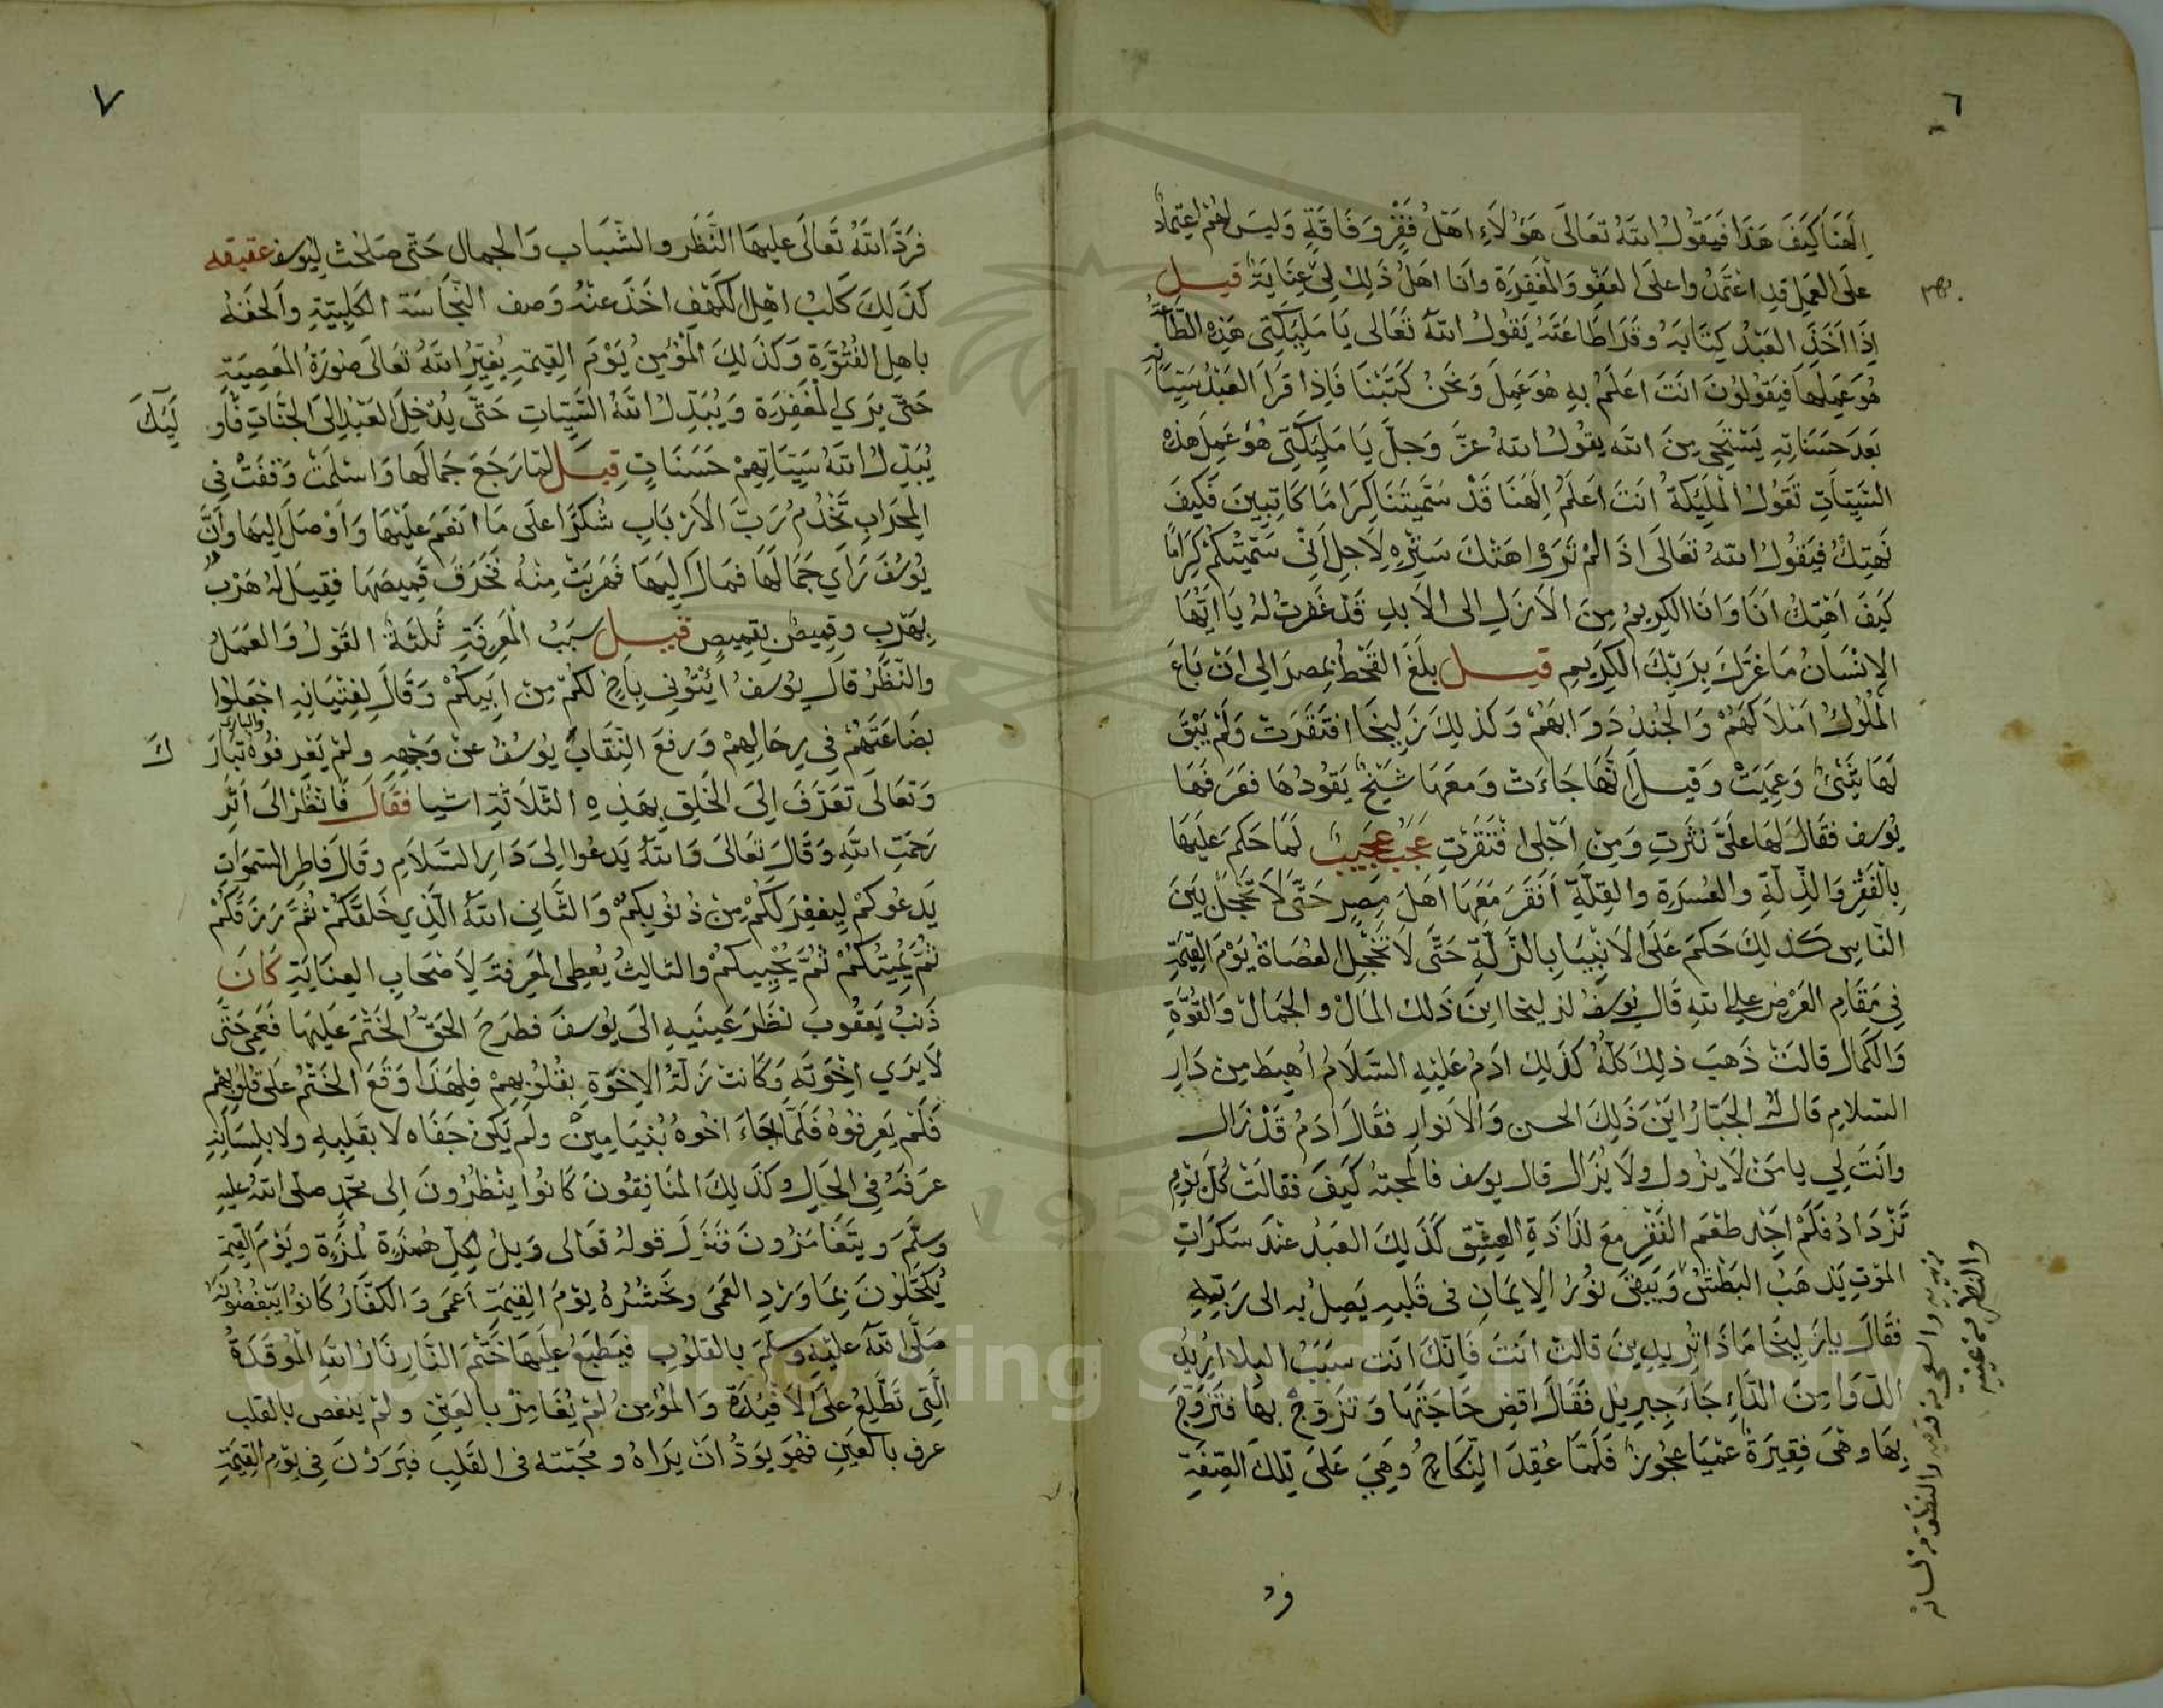 ٦
اِلَهنَا كَيفَ هَذَا فَيَقُولُ اللّهُ تعَالَى هَؤُلَاءِ اهَلُ فَقْرٍ وَفَاقَةٍ وَلَيسَ لهُم اعتِمادٌ
علَى العَمِل قدِ اعْتمَدُوا علَى العَفِو وَالْمَغفِرَة وانَا اهَلُ ذَلِكَ لِى عِنَايَةٌ قيل
اِذَا اَخَذَ العَبْدُ كِتَابَهُ وَقَدَ اطَاعَتَهُ يَقُولُ اللّهُ تَعَالى يَا مَلِيكَتِى هَذِهِ الطَّاعَة
هُوَ عَمِلَهَا فَيقُولُونَ انَتَ اعَلمُ بِهِ هوَ عَمِلَ وَنحنُ كَتَبْنَا فَاِذا قرَاَ العَبْدُ سَيِّاتِهِ
بَعدَ حَسَنَاتِهِ يَسْتَحِى مِنَ اللّه يقُولُ اللّهُ عزَّ وَجلَّ يَا مَلِيكَتِى هُوَ عَمِلَ هذه
السَّيّاتِ تقَولُ الْمَليَكةُ انَتَ اَعلَمُ اِلَهنَا قَدْ سَمَّيتَنَا كِرَامَا كَاتِبِينَ فَكيفَ
نَهتِكُ فيَقُولُ اللّهُ تعَالَى اذَا لمْ تَرَوْا هَتْكَ سَتْرِهِ لِاَجِل اَنِّى سَمَّيتُكمْ كِرَامًا
كَيفَ اَهْتِكُ انَا وَانَا الكَرِيمُ مِنَ الاَزَلِ الى الاَبدِ قَدْ غَفَرتُ لهُ يَا اَيُّهَا
الاِنْسَانُ مَا غرَّكَ بِرَبِّكَ الْكِرَيمِ قيل بلَغَ القَحْطُ بمِصرَ الِى انَ بَاعَ
الْمُلُوكُ امَلاَكَهُمْ وَالْجُندُ دَوَابَهُمْ وَكذلِكَ زَلِيخَا افتَقَرَت وَلَمْ يَبْقَ
لَهَا شَىْءٌ وَعَمِيَتْ وَقيلَ اِنَّهَا جَاءَتْ وَمَعهَا شَيْخٌ يَقُودُهَا فعَرَفَهَا
يُوسف فقَالَ لَهَا علَىَّ نثَرتِ وَمِنْ اَجْلِى افْتَقَرْتِ عَجَبٌ عجَيِبٌ لمَّا حَكمَ عَليَهَا
بِالْفَقْرِ وَالذِّلّةِ والعُسرَةِ والقِلَّةِ اَفقَرَ مَعَهَا اهَلَ مِصرٍ حَتَّى لاَ تَخْجَلَ بَيَنَ
النَّاسِ كذلِكَ حَكمَ عَلَى الاَنْبِيَا بِالزَّلّةِ حَتَّى لاَ تَخْجَلِ العُصَاةُ يَوْمَ القِيمَةِ
فِى مَقَامِ العَرْضِ علِى اللّهِ قَالَ يُوسفُ لزليخا اينَ ذَلكَ المَالْ والجَمالْ وَالقُوَّةِ
وَالكَمال قالَتْ ذَهبَ ذلِكَ كلُّهُ كذَلِكَ ادَمُ عَليْهِ السَّلَامُ اُهبِطَ مِنْ دَارِ
السَّلامِ قَال لهُ الجَبّارُ ايَنْ ذَلِكَ الحسن وَالاَنوارِ فقَالَ ادَمُ قَدْ زَالَ
وانَتَ لِى يا مَنْ لاَ يزُول ولاَ يُزَال قال يوسف فالمحبّهُ كَيفَ فقالَتْ كُلَّ يَوْمٍ
تَزْدَادُ فكَمْ اجِدُ طعَم الفَقْر مَعَ لذَاذَةِ العِشِق كذَلِكَ العَبدُ عندَ سَكرَاتِ
الموَتِ يَذهَبُ البَطْشُ وَيَبقَى نُوْرُ الِايَمانِ فى قَلبِهِ يَصِلُ بهِ الى رَبّهِ
فقَالَ يا زَلِيخَا مَاذَا تُرِيدِينَ قالَت انَتَ فَاِنَّكَ انَت سَببُ البلا اُريدُ
الدّوَا مِنَ الدَّاءِ جَاءَ جِبرِيلِ فقَالَ اقضِ حَاجَتَهَا وَتزَوَّجْ بهَا فَتَزَوَّجَ
بِهَا وهْىَ فِقيرَةٌ عمْيَا عجُوزٌ فَلَمّا عُقِدَ النِّكَاحُ وَهِيَ عَلىَ تِلكَ الصِّفَةِ
فرد
٧
فرَدَّ اللّهُ تَعَالَى عليهَا النَّظَر والشّبَاب وَالجمال حَتّى صَلحَتْ لِيُوسف عقيقه
كذَلِكَ كَلبُ اهلِ الكَهْفِ اخَذَ عنْهُ وَصف النّجَاسَة الكَلِبيّةِ وَالحقَهُ
باهلِ الفُتُوّةِ وَكَذلِكَ الْمُؤْمِنُ يَوْمَ القِيمَةِ يُغَيِّرُ اللّهُ تعَالَى صُورَةُ المَعصِيَةِ
حَتّى يرَى الْمَغفِرَة وَيُبَدّلُ اللّهُ السَّيّاتِ حَتَّى يُدْخِلَ العَبْدِ الَى الجَنّاتِ فَاُولَيِكَ
يُبَدِّلُ اللّهُ سَيّاتِهِمْ حَسَنَاتٍ قِيَل لمّا رَجَعَ جَمَالَها وَاسْلمَتْ وَقفَتْ فِى
المِحرَابِ تَخْدُمُ رَبَّ الاَرْبَابِ شُكرًا علَى مَا انَعَم عَليْهَا وَاَوْصَلَ اِليهَا وَاَنَّ
يُوسُفَ رَاَى جَمَالَهَا فمَالَ اليِهَا فَهرَبَتْ مِنْهُ فَخَرَقَ قَمِيصَهَا فقِيلَ لَهُ هَرْبٌ
بِهَرْبِ وقِميصٌ بِقميِصٍ قيل سبَبُ الْمَعرِفَةِ ثَلثَةٌ القَوْلُ وَالعَمَلُ
والنّظَرُ قالَ يُوسفُ ائْتُونِى بِاَخٍ لَكُمْ مِنْ اَبِيكُمْ وَقَالَ لِفِتْيَانِهِ اجْعَلُوا
بضَاعَتَهُمْ فِى رِحَالِهِمْ وَرفعَ النِّقَابَ يُوسُفُ عنْ وَجْهِهِ ولمْ يَعْرِفوُهُ والبارى تَبَارَكَ
وَتعَالَى تعَرّفَ اِلَى الخَلقِ بِهَذِهِ الثّلاَثَةِ اشيا فقَالَ فَانْظُرْ الَى اَثَرِ
رَحمَتِ اللّهِ وَقالَ تعَالَى وَاللّهُ يَدعُوا اِلىَ دَارِ السَّلاَمِ وقَالَ فَاطِرِ السّموَاتِ
يَدعُوكُمْ لِيغفِرَ لَكُمْ مِنْ ذُنُوبِكُمْ وَالثَّانِى اللّهُ الّذِى خَلقَكُمْ ثُمَّ رَزَقَكُمْ
ثُمَّ يُمِيتُكُمْ ثُمَّ يُحْيِيكُمْ والثالِثُ يُعطِى المَعرِفةَ لِاَصْحَابِ العِنَايَةِ كَانَ
ذَنبُ يَعقُوبَ نظَرَ عَينَيهِ الىَ يُوسفَ فطَرحَ الحَقُّ الخَتْمَ عَليهَا فَعَمِىَ حَتَّى
لاَ يَرَى اِخْوَتَهِ وَكَانتْ زَلّةُ الاِخْوَةِ بقُلوُبِهِمْ فِلهَذَا وَقعَ الخَتْمُ علَى قلُوبِهِم
فَلَمْ يَعرِفُوهُ فَلَمّا جَاءَ اخُوهُ بُنيَامِينْ ولَم يَكنْ جَفَاه لاَ بقَلبِهِ ولا بلِسَانِهِ
عرَفهُ فِى الحَالِ وَكذَلِكَ المنَافِقُونَ كَانُوا ينْظُرُونَ الِى محَّمد صلى اللّه عليه
وسلّمَ ويتَغَامَزُونَ فنَزلَ قولهُ تعَالى وَيلٌ لكِلّ هُمزَةٍ لُمزَةٍ ويَوْمَ القِيمَة
يُكحَّلُونَ بِمَا وَرَدِ العَمَى وَنَحْشُرُهُ يوْمَ القِيَمةِ اَعمَى وَالكُفّارُ كَانُوا يَبْغضُونَهُ
صَلَّى اللّهُ عليْهِ وسلّمَ بالقلوبِ فيُطبَعُ علَيهَا ختْمَ النَّارِ نَارُ اللّهِ الْموُقدَةُ
الّتِى تَطَّلِعُ علَى الاَفئِدَةِ وَالمُؤمِنُ لَمْ يُغَامِزْ بالعَينِ ولمْ يبغض بالقلب
عرف بالعَينِ فهُوَ يوَدُّ انَ يرَاهُ ومحَبّته فى القَلبِ فيَرَوْنَ فِى يَوْمِ القِيمَةِ